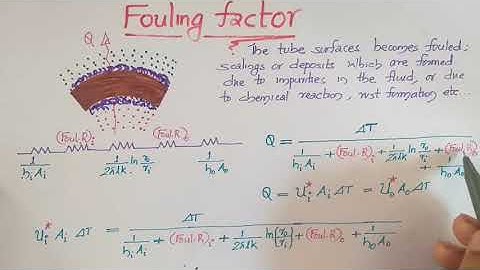 Fouling factor
Q
The tube surfaces becomes fouled;
scalings or deposits which are formed
due to impurities in the fluid, or due
to chemical reaction, rust formation etc...
(Foul.R)i (Foul.R)o
1/hiAi 1/2πlk ln ro/ri 1/hoAo
Q = ΔT / (1/hiAi + (Foul.R)i + 1/2πlk ln ro/ri + (Foul.R)o + 1/hoAo)
Q = Ui* Ai ΔT = Uo* Ao ΔT
Ui* Ai ΔT = ΔT / (1/hiAi + (Foul.R)i + 1/2πlk ln(ro/ri) + (Foul.R)o + 1/hoAo)